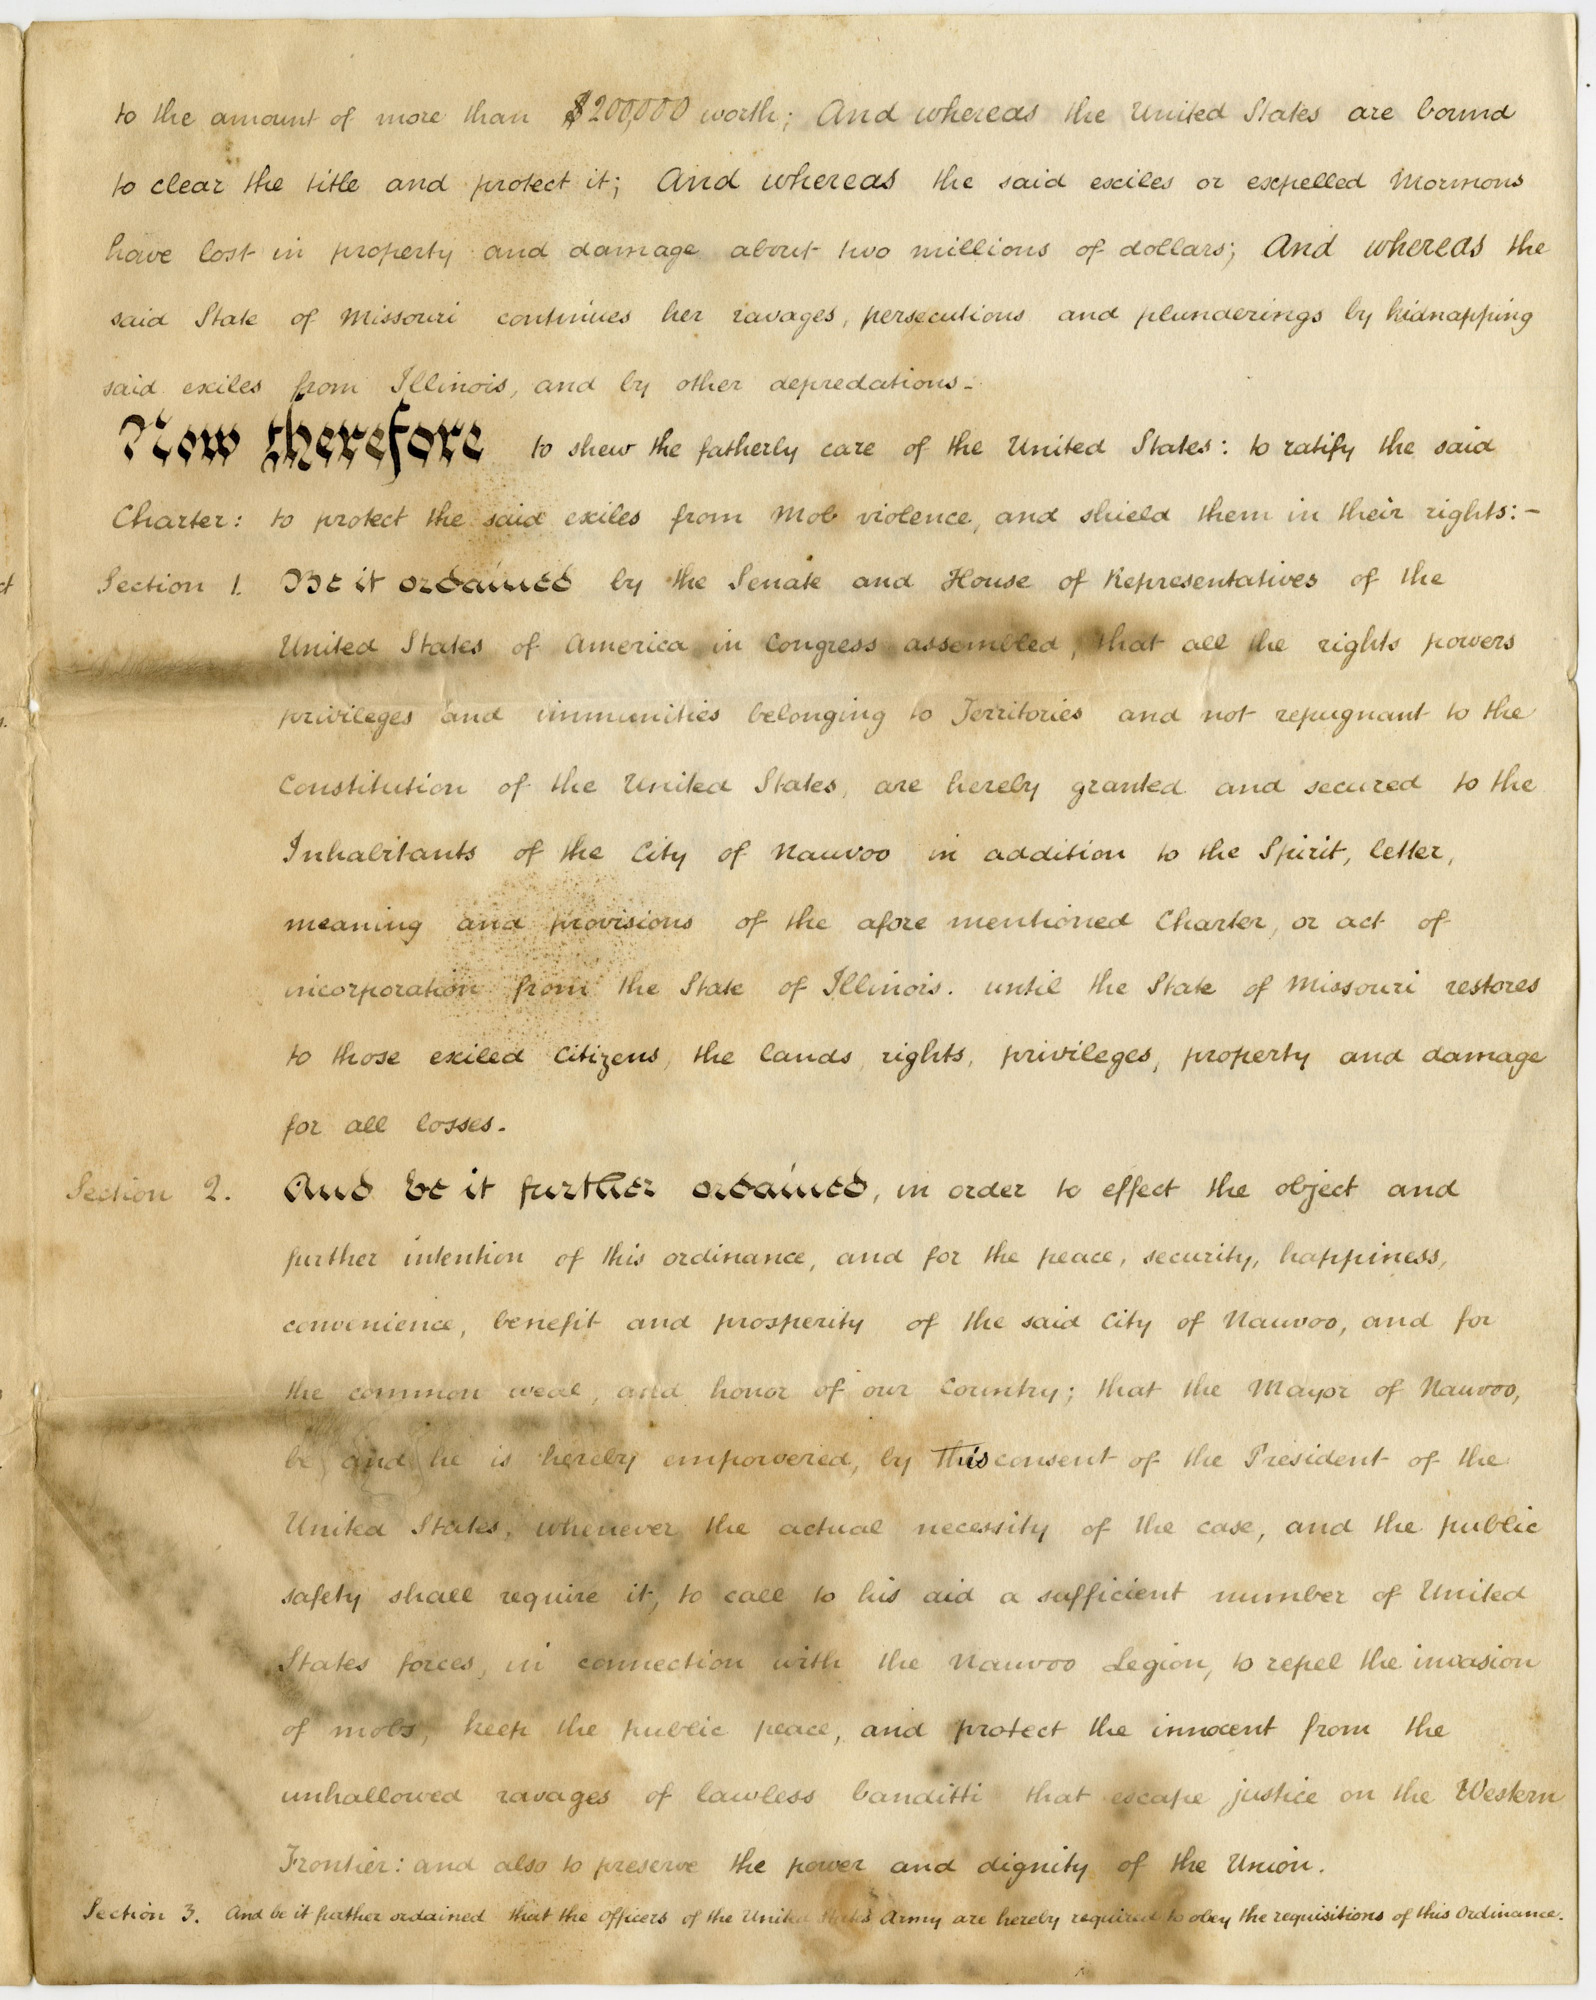 to the amount of more than $200,000 worth; And whereas the United States are bound
to clear the title and protect it; And whereas the said exciles or expelled Mormons
have lost in property and damage about two millions of dollars; And whereas the
said State of Missouri continues her ravages, persecutions and plunderings by kidnapping
said exiles from Illinois, and by other depredations.
Now therefore to shew the fatherly care of the United States: to ratify the said
Charter: to protect the said exiles from Mob violence, and shield them in their rights:-
Section 1. Be it ordained by the Senate and House of Representatives of the
United States of America in Congress assembled, that all the rights powers
privileges and immunities belonging to Territories and not repugnant to the
Constitution of the United States, are hereby granted and secured to the
Inhabitants of the City of Nauvoo in addition to the Spirit, letter,
meaning and provisions of the afore mentioned Charter, or act of
incorporation from the State of Illinois. until the State of Missouri restores
to those exiled Citizens, the lands, rights, privileges, property and damage
for all losses.
Section 2. And be it further ordained, in order to effect the object and
further intention of this ordinance, and for the peace, security, happiness,
convenience, benefit and prosperity of the said City of Nauvoo, and for
the common weal, and honor of our Country; that the Mayor of Nauvoo,
be and he is hereby empowered, by this consent of the President of the
United States, whenever the actual necessity of the case, and the public
safety shall require it, to call to his aid a sufficient number of United
States forces, in connection with the Nauvoo Legion, to repel the invasion
of mobs, keep the public peace, and protect the innocent from the
unhallowed ravages of lawless banditti that escape justice on the Western
Frontier: and also to preserve the power and dignity of the Union.
Section 3. And be it further ordained that the officers of the United States Army are hereby required to obey the requisitions of this Ordinance.